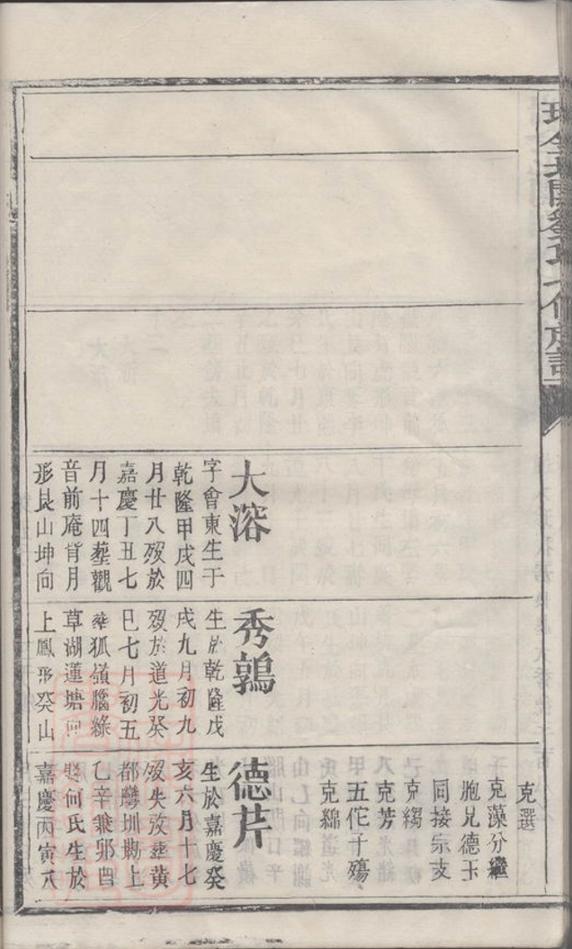 大溶
字會東生于
乾隆甲戌四
月廿八歿於
嘉慶丁丑七
月十四塟觀
音前庵背月
形艮山坤向
秀鶉
生於乾隆戊
戌九月初九
歿於道光癸
巳七月初五
塟狐嶺腦綠
草湖蓮塘
上鳳形癸山
克選
克藻分繼
胞兄德玉
同接宗支
克縐
克芳
五佗子殤
克綿
德芹
生於嘉慶癸
亥六月十七
歿失攷塟黄
都灣圳塅上
乙辛兼卯酉
娶何氏生於
嘉慶丙寅八